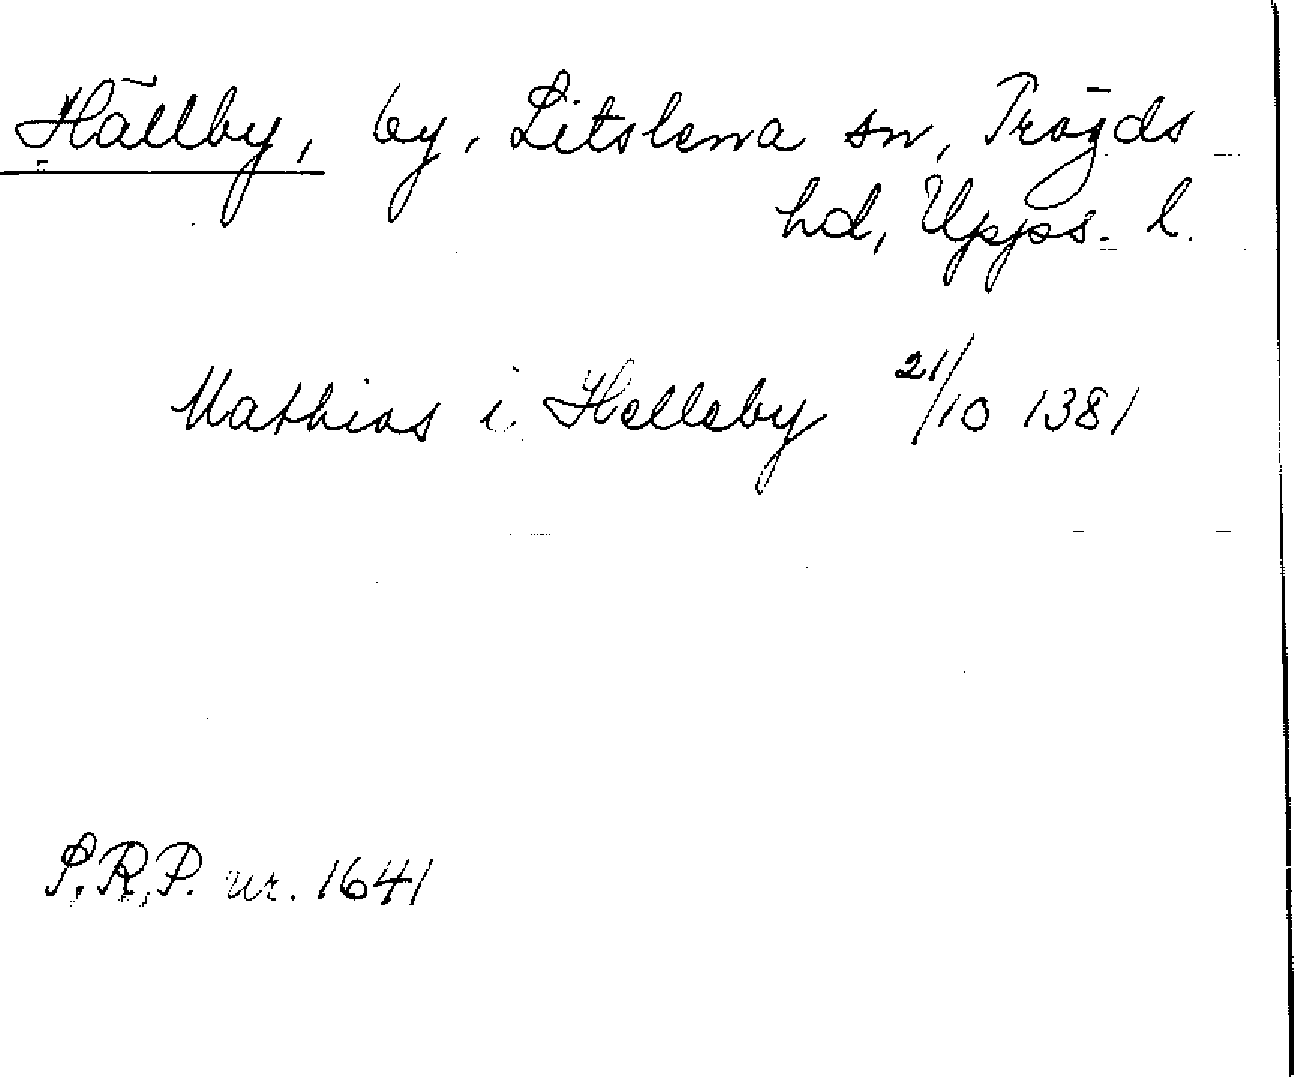 Hällby, by, Litslena sn, Trögds
hd, Upps. l.
Mathias i Helleby 21/10 1381
S.R.P. nr. 1641